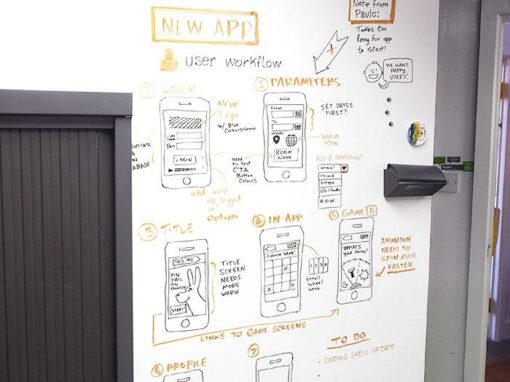 NEW APP
Note from
Paulo:
Takes too
long for app
to start!
WE WANT
HAPPY
USERS!
user workflow
1 LOGIN
New
Logo
w/ Blue
LOGIN
Need to
test
CTA
Button
Colours
add keep
me logged
in
option
2 PARAMETERS
BOOK
NOW
SET DATES
FIRST?
3 TITLE
PIN
TAIL
ON
START
TITLE
SCREEN
NEEDS
MORE
WORK
4 IN-APP
X
X
X
Scroll
wheel
here
5 GAME B
ANIMATION
NEEDS TO
SPIN MUCH
FASTER
LINKS TO GAME SCREENS
6 PROFILE
7
TO DO
- CODING SHELL UPDATE